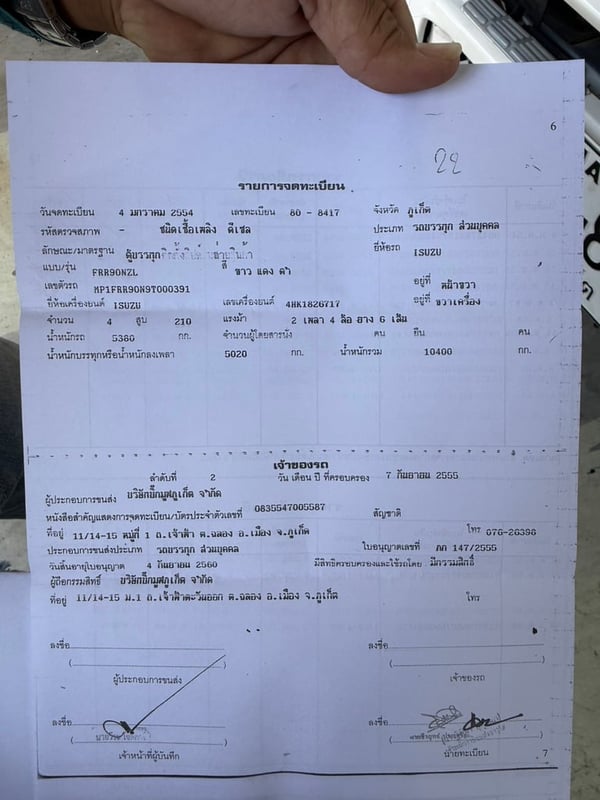 6
22
รายการจดทะเบียน
วันจดทะเบียน 4 มกราคม 2554 เลขทะเบียน 80 - 8417 จังหวัด ภูเก็ต
รหัสตรวจสภาพ - ชนิดเชื้อเพลิง ดีเซล ประเภท รถบรรทุก ส่วนบุคคล
ลักษณะ/มาตรฐาน ตู้บรรทุก ยี่ห้อรถ ISUZU
แบบ/รุ่น FRR90NZL สี ขาว แดง ดำ
เลขตัวรถ MP1FRR90N9T000391 อยู่ที่ หน้าขวา
ยี่ห้อเครื่องยนต์ ISUZU เลขเครื่องยนต์ 4HK1826717 อยู่ที่ ขวาเครื่อง
จำนวน 4 สูบ 210 แรงม้า 2 เพลา 4 ล้อ ยาง 6 เส้น
น้ำหนักรถ 5380 กก. จำนวนผู้โดยสารนั่ง คน ยืน คน
น้ำหนักบรรทุกหรือน้ำหนักลงเพลา 5020 กก. น้ำหนักรวม 10400 กก.
เจ้าของรถ
ลำดับที่ 2 วัน เดือน ปี ที่ครอบครอง 7 กันยายน 2555
ผู้ประกอบการขนส่ง บริษัทบิ๊กมูฟภูเก็ต จำกัด
หนังสือสำคัญแสดงการจดทะเบียน/บัตรประจำตัวเลขที่ 0835547005587 สัญชาติ
ที่อยู่ 11/14-15 หมู่ที่ 1 ถ.เจ้าฟ้า ต.ฉลอง อ.เมือง จ.ภูเก็ต โทร 076-26398
ประกอบการขนส่งประเภท รถบรรทุก ส่วนบุคคล ใบอนุญาตเลขที่ ภก 147/2555
วันสิ้นอายุใบอนุญาต 4 กันยายน 2560 มีสิทธิครอบครองและใช้รถโดย มีกรรมสิทธิ์
ผู้ถือกรรมสิทธิ์ บริษัทบิ๊กมูฟภูเก็ต จำกัด
ที่อยู่ 11/14-15 ม.1 ถ.เจ้าฟ้าตะวันออก ต.ฉลอง อ.เมือง จ.ภูเก็ต โทร
ลงชื่อ ลงชื่อ
( ) ( )
ผู้ประกอบการขนส่ง เจ้าของรถ
ลงชื่อ ลงชื่อ
( ) ( )
เจ้าหน้าที่ผู้บันทึก นายทะเบียน
7